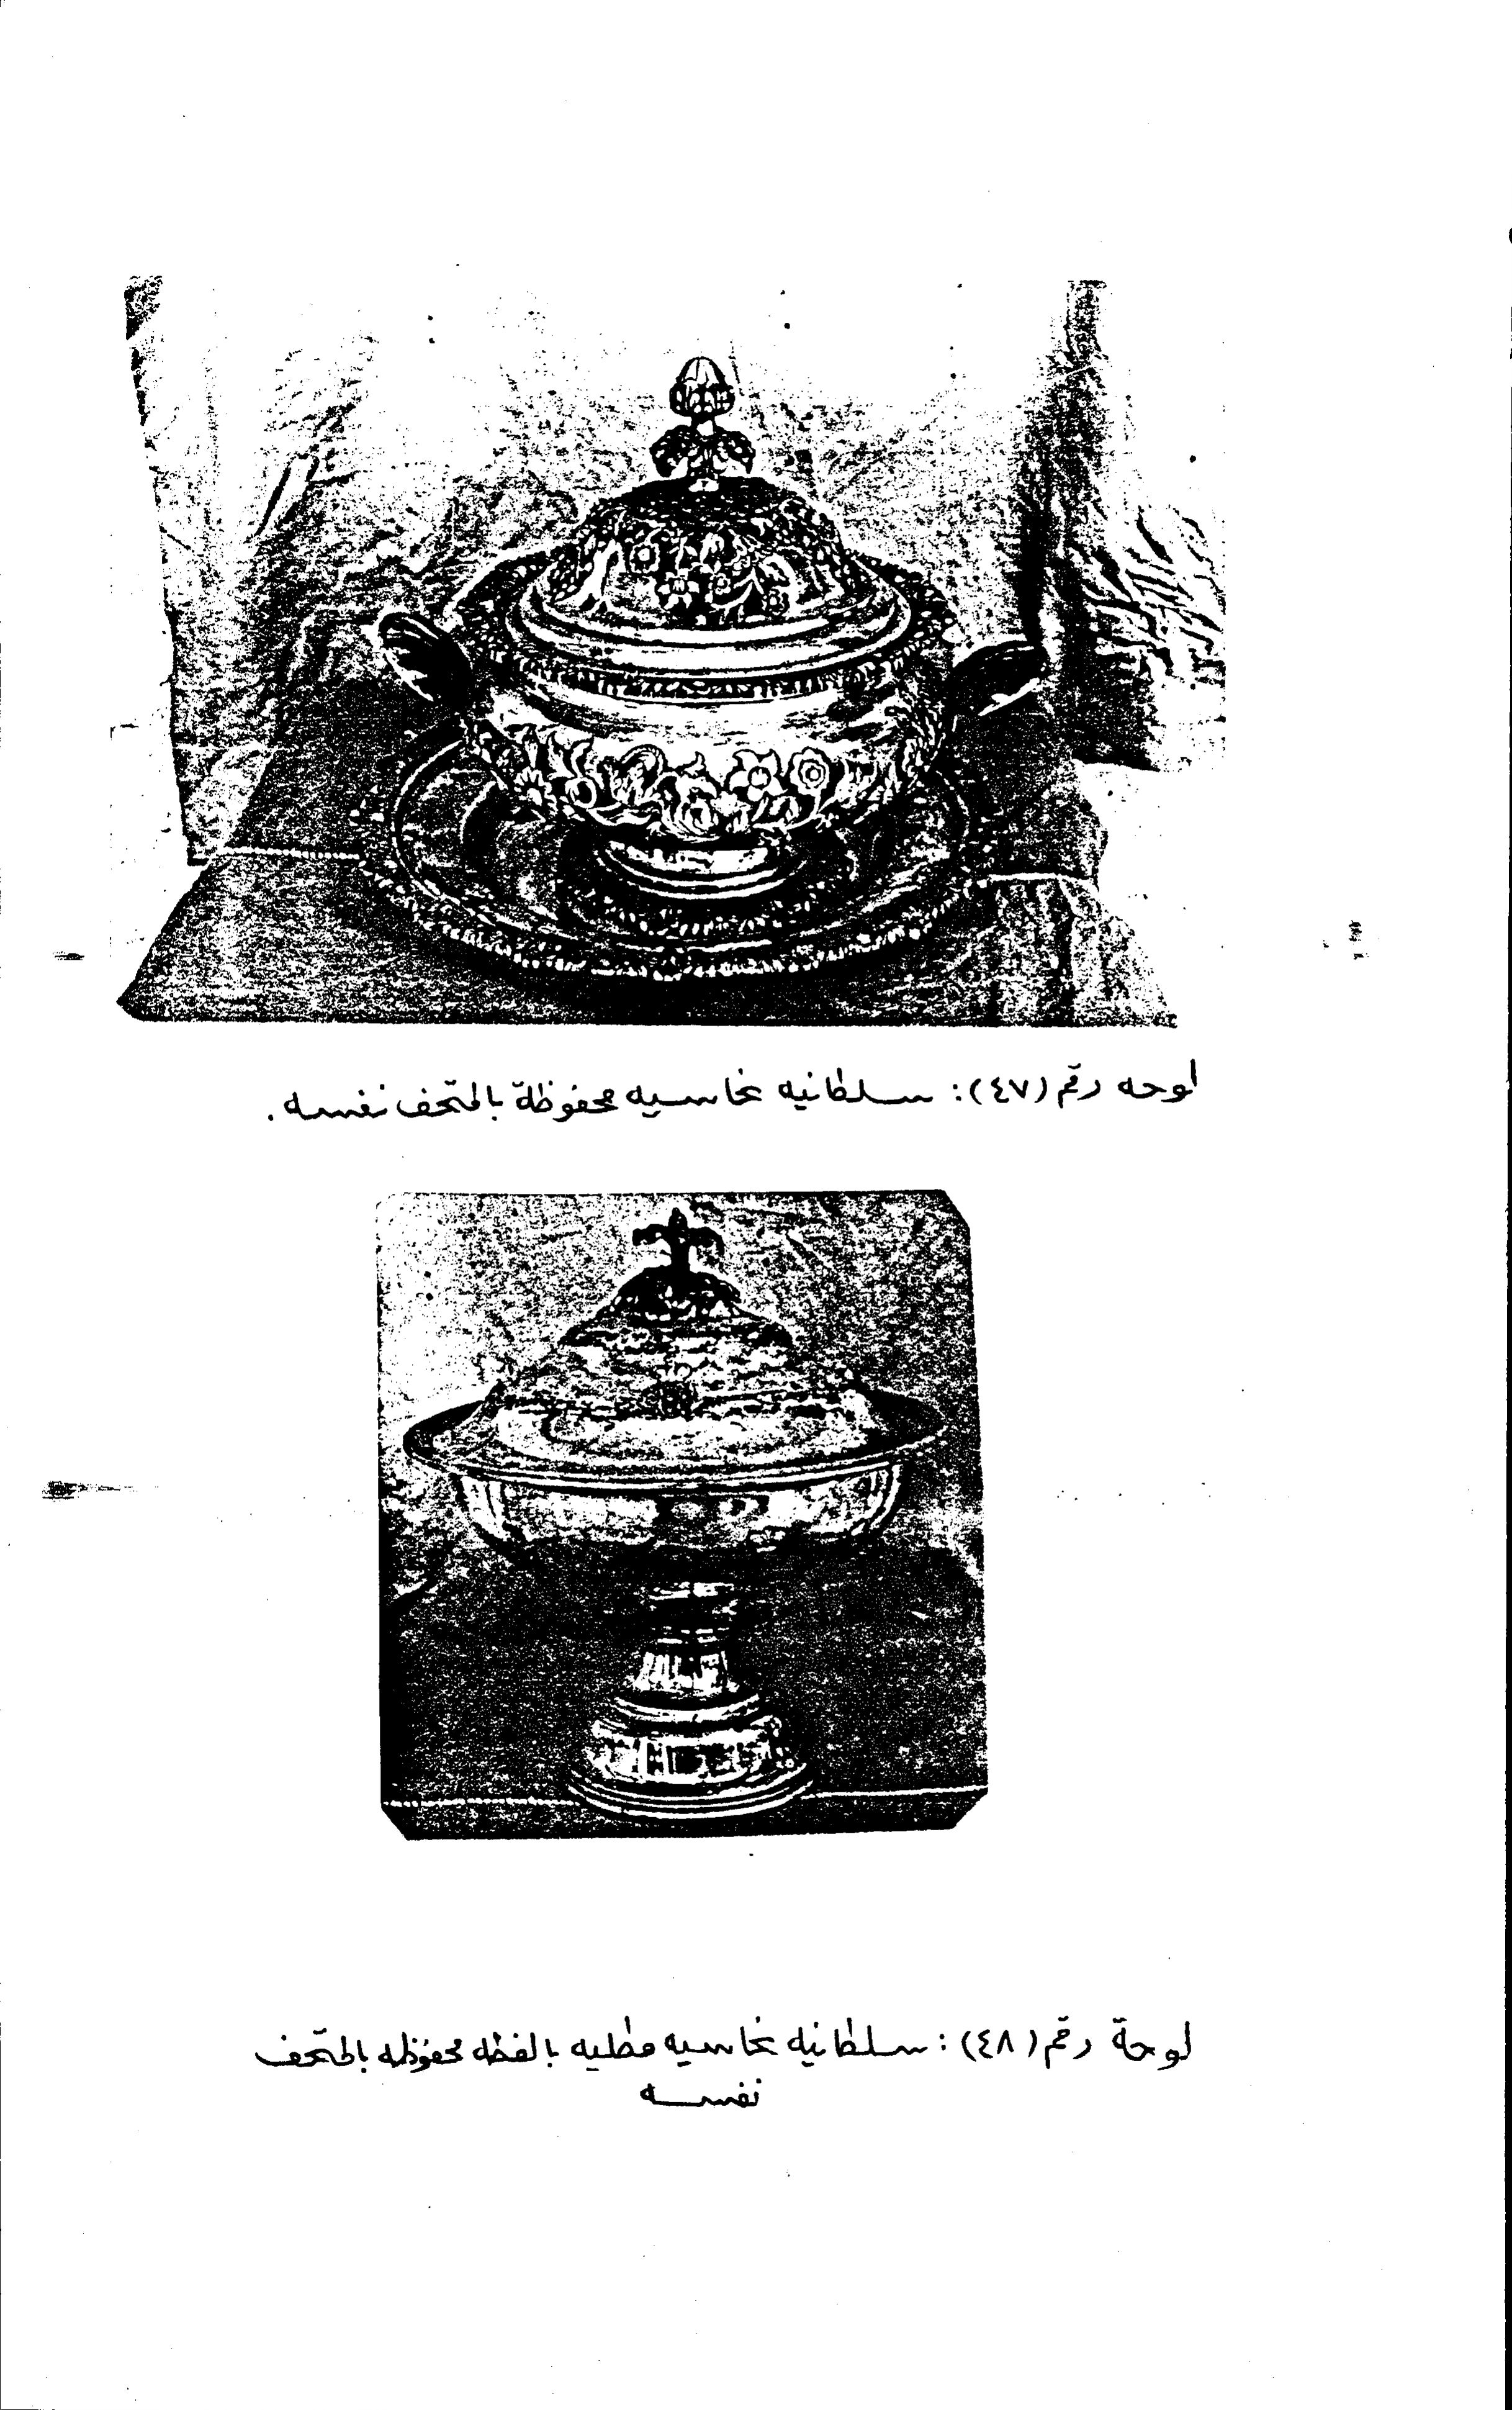 لوحه رقم (٤٧): سلطانيه نحاسيه محفوظة بالمتحف نفسه.
لوحة رقم (٤٨): سلطانيه نحاسيه مطليه بالفضه محفوظه بالمتحف
نفسه